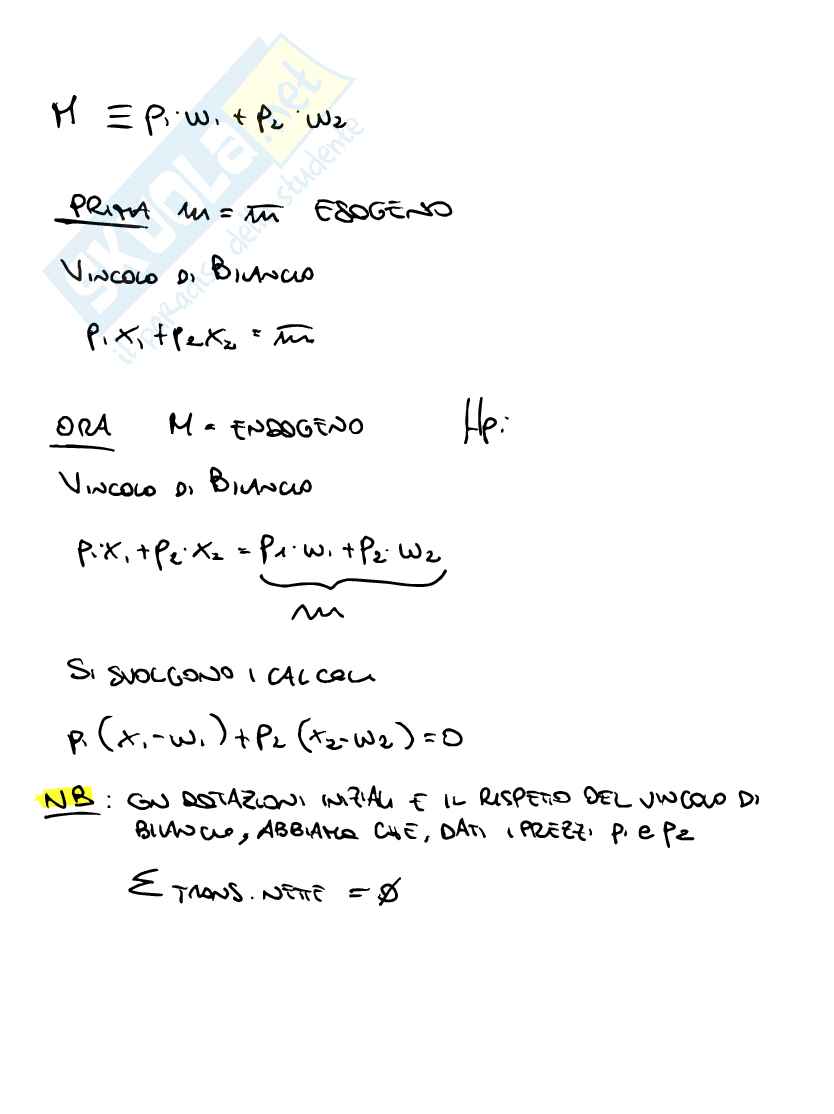 M ≡ p₁·w₁ + p₂·w₂
PRIMA m = m̅ ESOGENO
VINCOLO DI BILANCIO
p₁x₁ + p₂x₂ = m̅
ORA M = ENDOGENO Hp:
VINCOLO DI BILANCIO
p₁·x₁ + p₂·x₂ = p₁·w₁ + p₂·w₂
m
SI SVOLGONO I CALCOLI
p₁(x₁-w₁) + p₂(x₂-w₂) = 0
NB : CON DOTAZIONI INIZIALI E IL RISPETTO DEL VINCOLO DI
BILANCIO, ABBIAMO CHE, DATI I PREZZI p₁ e p₂
Σ TRANS. NETTE = Ø
SKUOLA.net
il paradiso dello studente